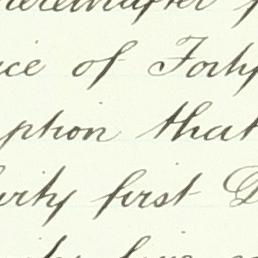 hereinafter
ice of Forty
ption that
urity first D
five